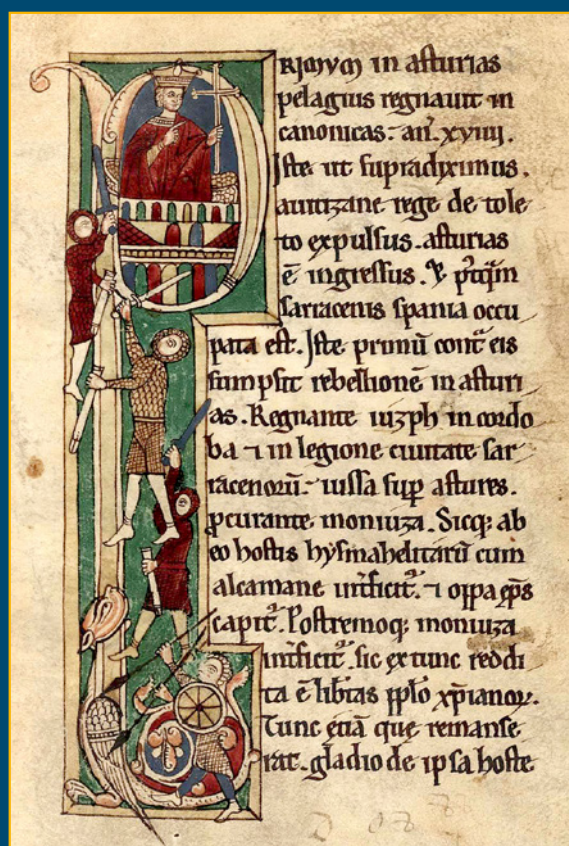 PRIMUM in asturias
pelagius regnauit in
canonicas. an̄. xviiij.
Iste ut supradiximus.
a uitizane rege de tole
to expulsus. asturias
ē ingressus. & p̄tqͣm
sarracenis spania occu
pata est. Iste primū cont̄ eis
sumpsit rebellionē in asturi
as. Regnante iuzph in cordo
ba ⁊ in legione ciuitate sar
racenorū. iussa sup̄ astures.
ꝓcurante moniuza. Sicqꝫ ab
eo hostis hysmahelitarū cum
alcamane int̄ficit̄. ⁊ oppa ep̄s
capit̄. Postremoqꝫ moniuza
int̄ficit̄. sic ex tunc reddi
ta ē lib̄tas pp̄lo xp̄ianoꝝ.
Tunc etiā que remanse
rat. gladio de ipsa hoste